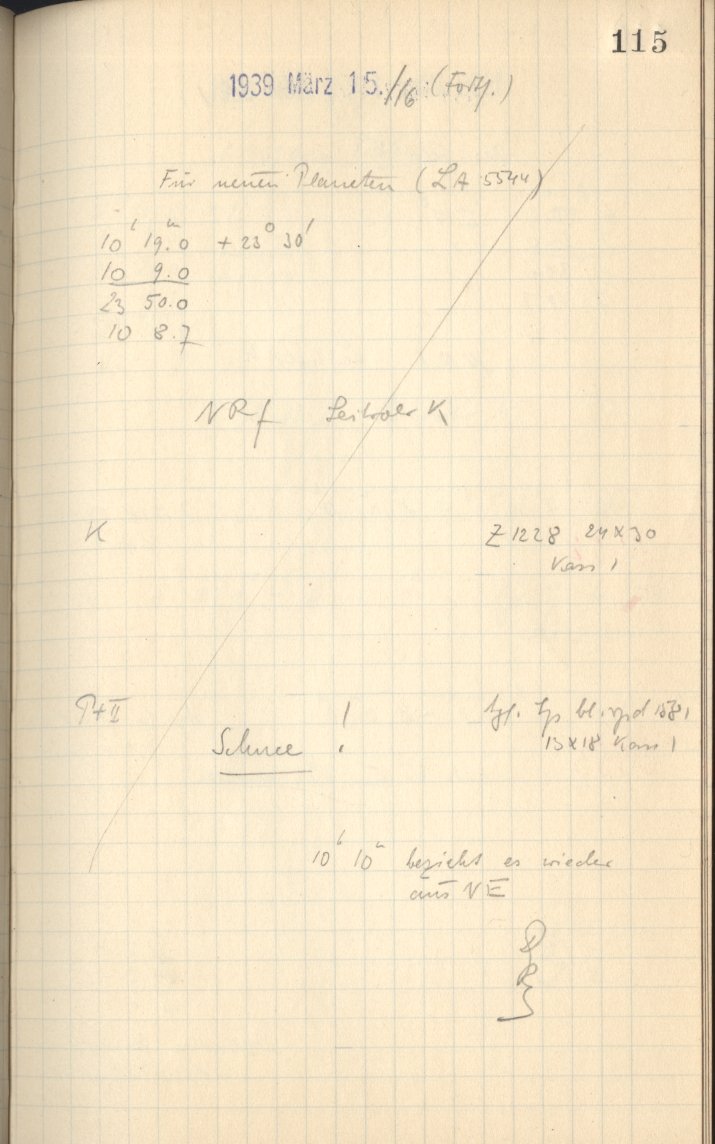 115
1939 März 15./16 (Forts.)
Für neuen Planeten (LA 5544)
10ʰ 19ᵐ.0 + 23° 30'
10 9.0
23 50.0
10 8.7
NRf K
K
Z 1228 24×30
Kass 1
P+II
Schnee !
13×18 Kass 1
10ʰ 10ᵐ bezieht es wieder
aus NE